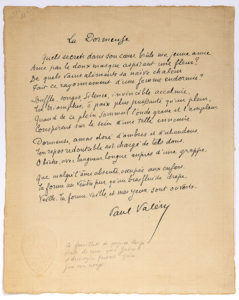 La Dormeuse
Quels secrets dans son cœur brûle ma jeune amie
Ame par le doux masque aspirant une fleur ?
De quels vains aliments sa naïve chaleur
Fait ce rayonnement d'une femme endormie ?
Souffle, songes, silence, invincible accalmie,
Tu triomphes, ô paix plus puissante qu'un pleur,
Quand de ce plein sommeil l'onde grave et l'ampleur
Conspirent sur le sein d'une telle ennemie.
Dormeuse, amas doré d'ombres et d'abandons
Ton repos redoutable est chargé de tels dons
O biche avec langueur longue auprès d'une grappe,
Que malgré l'âme absente occupée aux enfers
Ta forme au ventre pur qu'un bras fluide drape,
Veille, ta forme veille, et mes yeux sont ouverts.
Paul Valéry